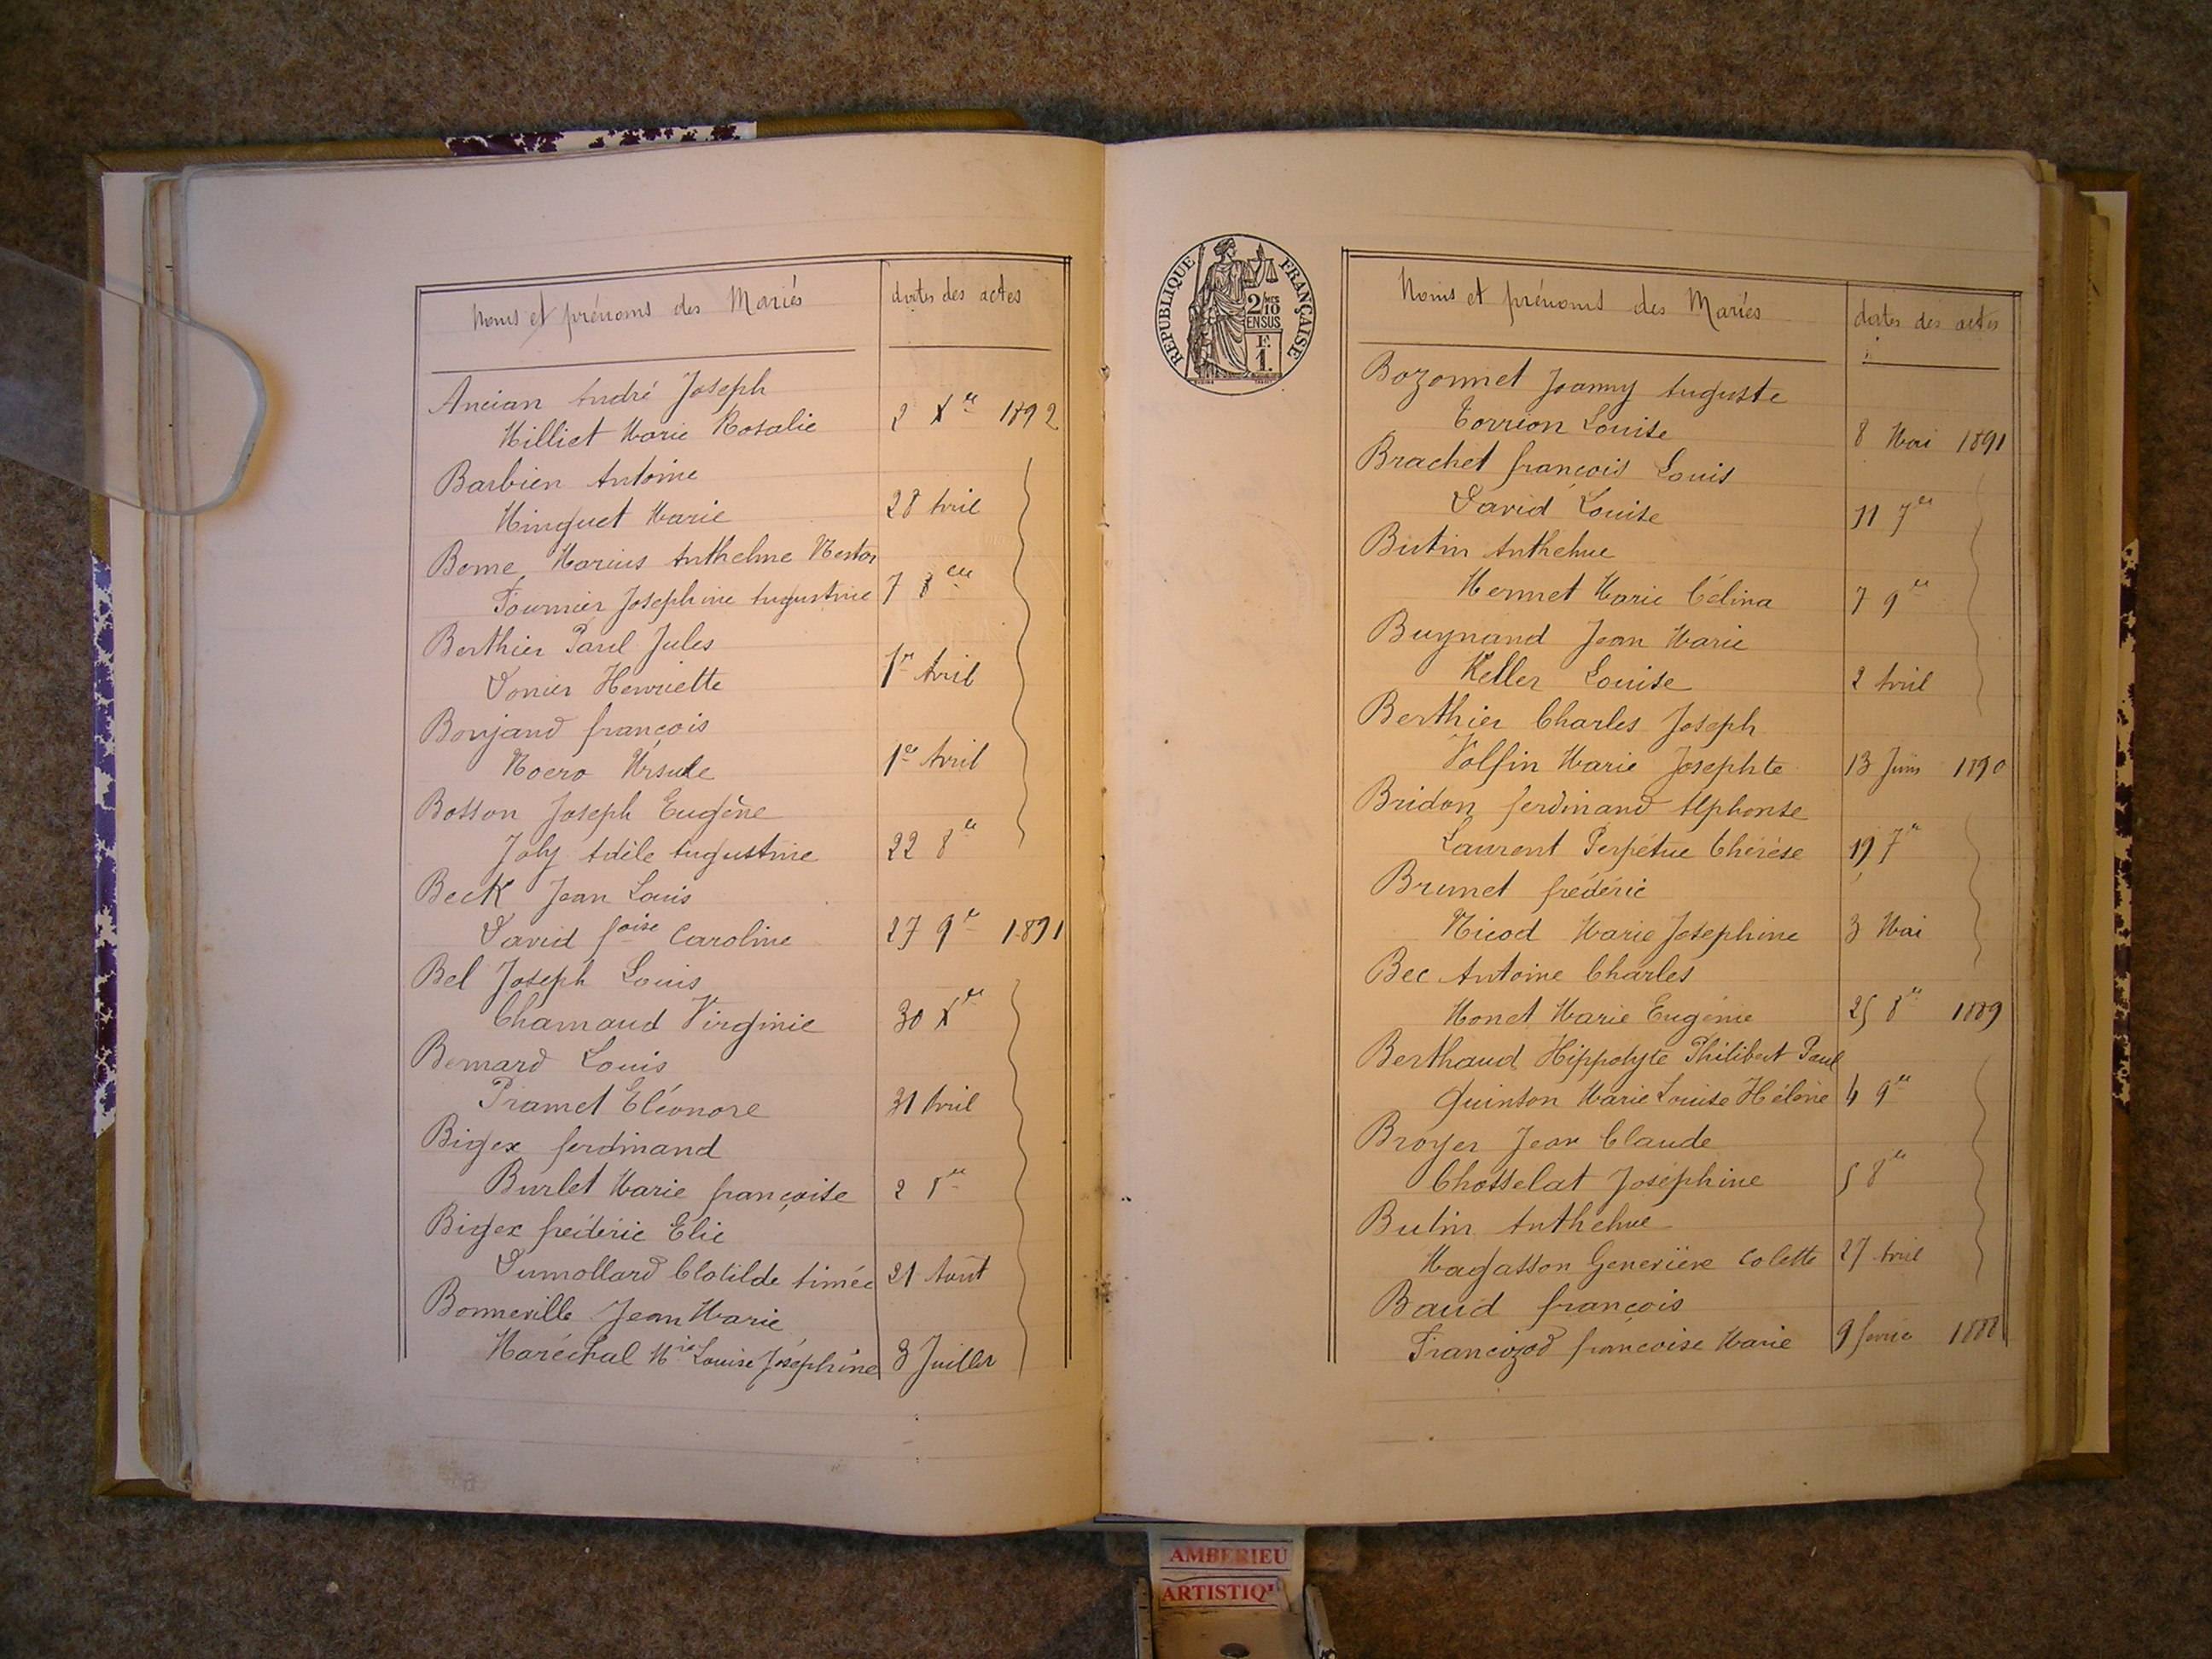 Noms et prénoms des Mariés dates des actes
Ancian André Joseph
Milliet Marie Rosalie 2 Xre 1892
Barbien Antoine
Minguet Marie 28 Avril
Bome Marius Anthelme Nestor
Fournier Josephine Augustine 7
Berthier Paul Jules
Donier Henriette 1er Avril
Bonjand françois
Noero Ursule 1er Avril
Bosson Joseph Eugène
Joly Adèle Augustine 22 8re
Beck Jean Louis
David foise Caroline 27 9re 1891
Bel Joseph Louis
Chamaud Virginie 30 Xre
Bernard Louis
Pramet Eléonore 31 Avril
Bigex ferdinand
Burlet Marie françoise 2
Bigex frédéric Elie
Dumollard Clotilde Aimée 21 Août
Bonneville Jean Marie
Maréchal Mie Louise Joséphine 3 Juillet
REPUBLIQUE FRANÇAISE
2/10MES
EN SUS
F.
1.
Noms et prénoms des Mariés dates des actes
Bozonnet Joanny Auguste
Torrion Louise 8 Mai 1891
Brachet françois Louis
David Louise 11 7re
Butin Anthelme
Mermet Marie Célina 7 9re
Buynand Jean Marie
Keller Louise 2 Avril
Berthier Charles Joseph
Volfin Marie Josephte 13 Juin 1890
Bridon ferdinand Alphonse
Laurent Perpétue Thérèse 19 7re
Brunet frédéric
Nicod Marie Josephine 3 Mai
Bec Antoine Charles
Monet Marie Eugénie 25 8re 1889
Berthaud Hippolyte Philibert Paul
Quinson Marie Louise Hélène 4 9re
Broyer Jean Claude
Chosselat Joséphine 5 8re
Butin Anthelme
Magasson Geneviève Colette 27 Avril
Baud françois
Francozod françoise Marie 9 fevrie 1888
AMBERIEU
ARTISTIQU